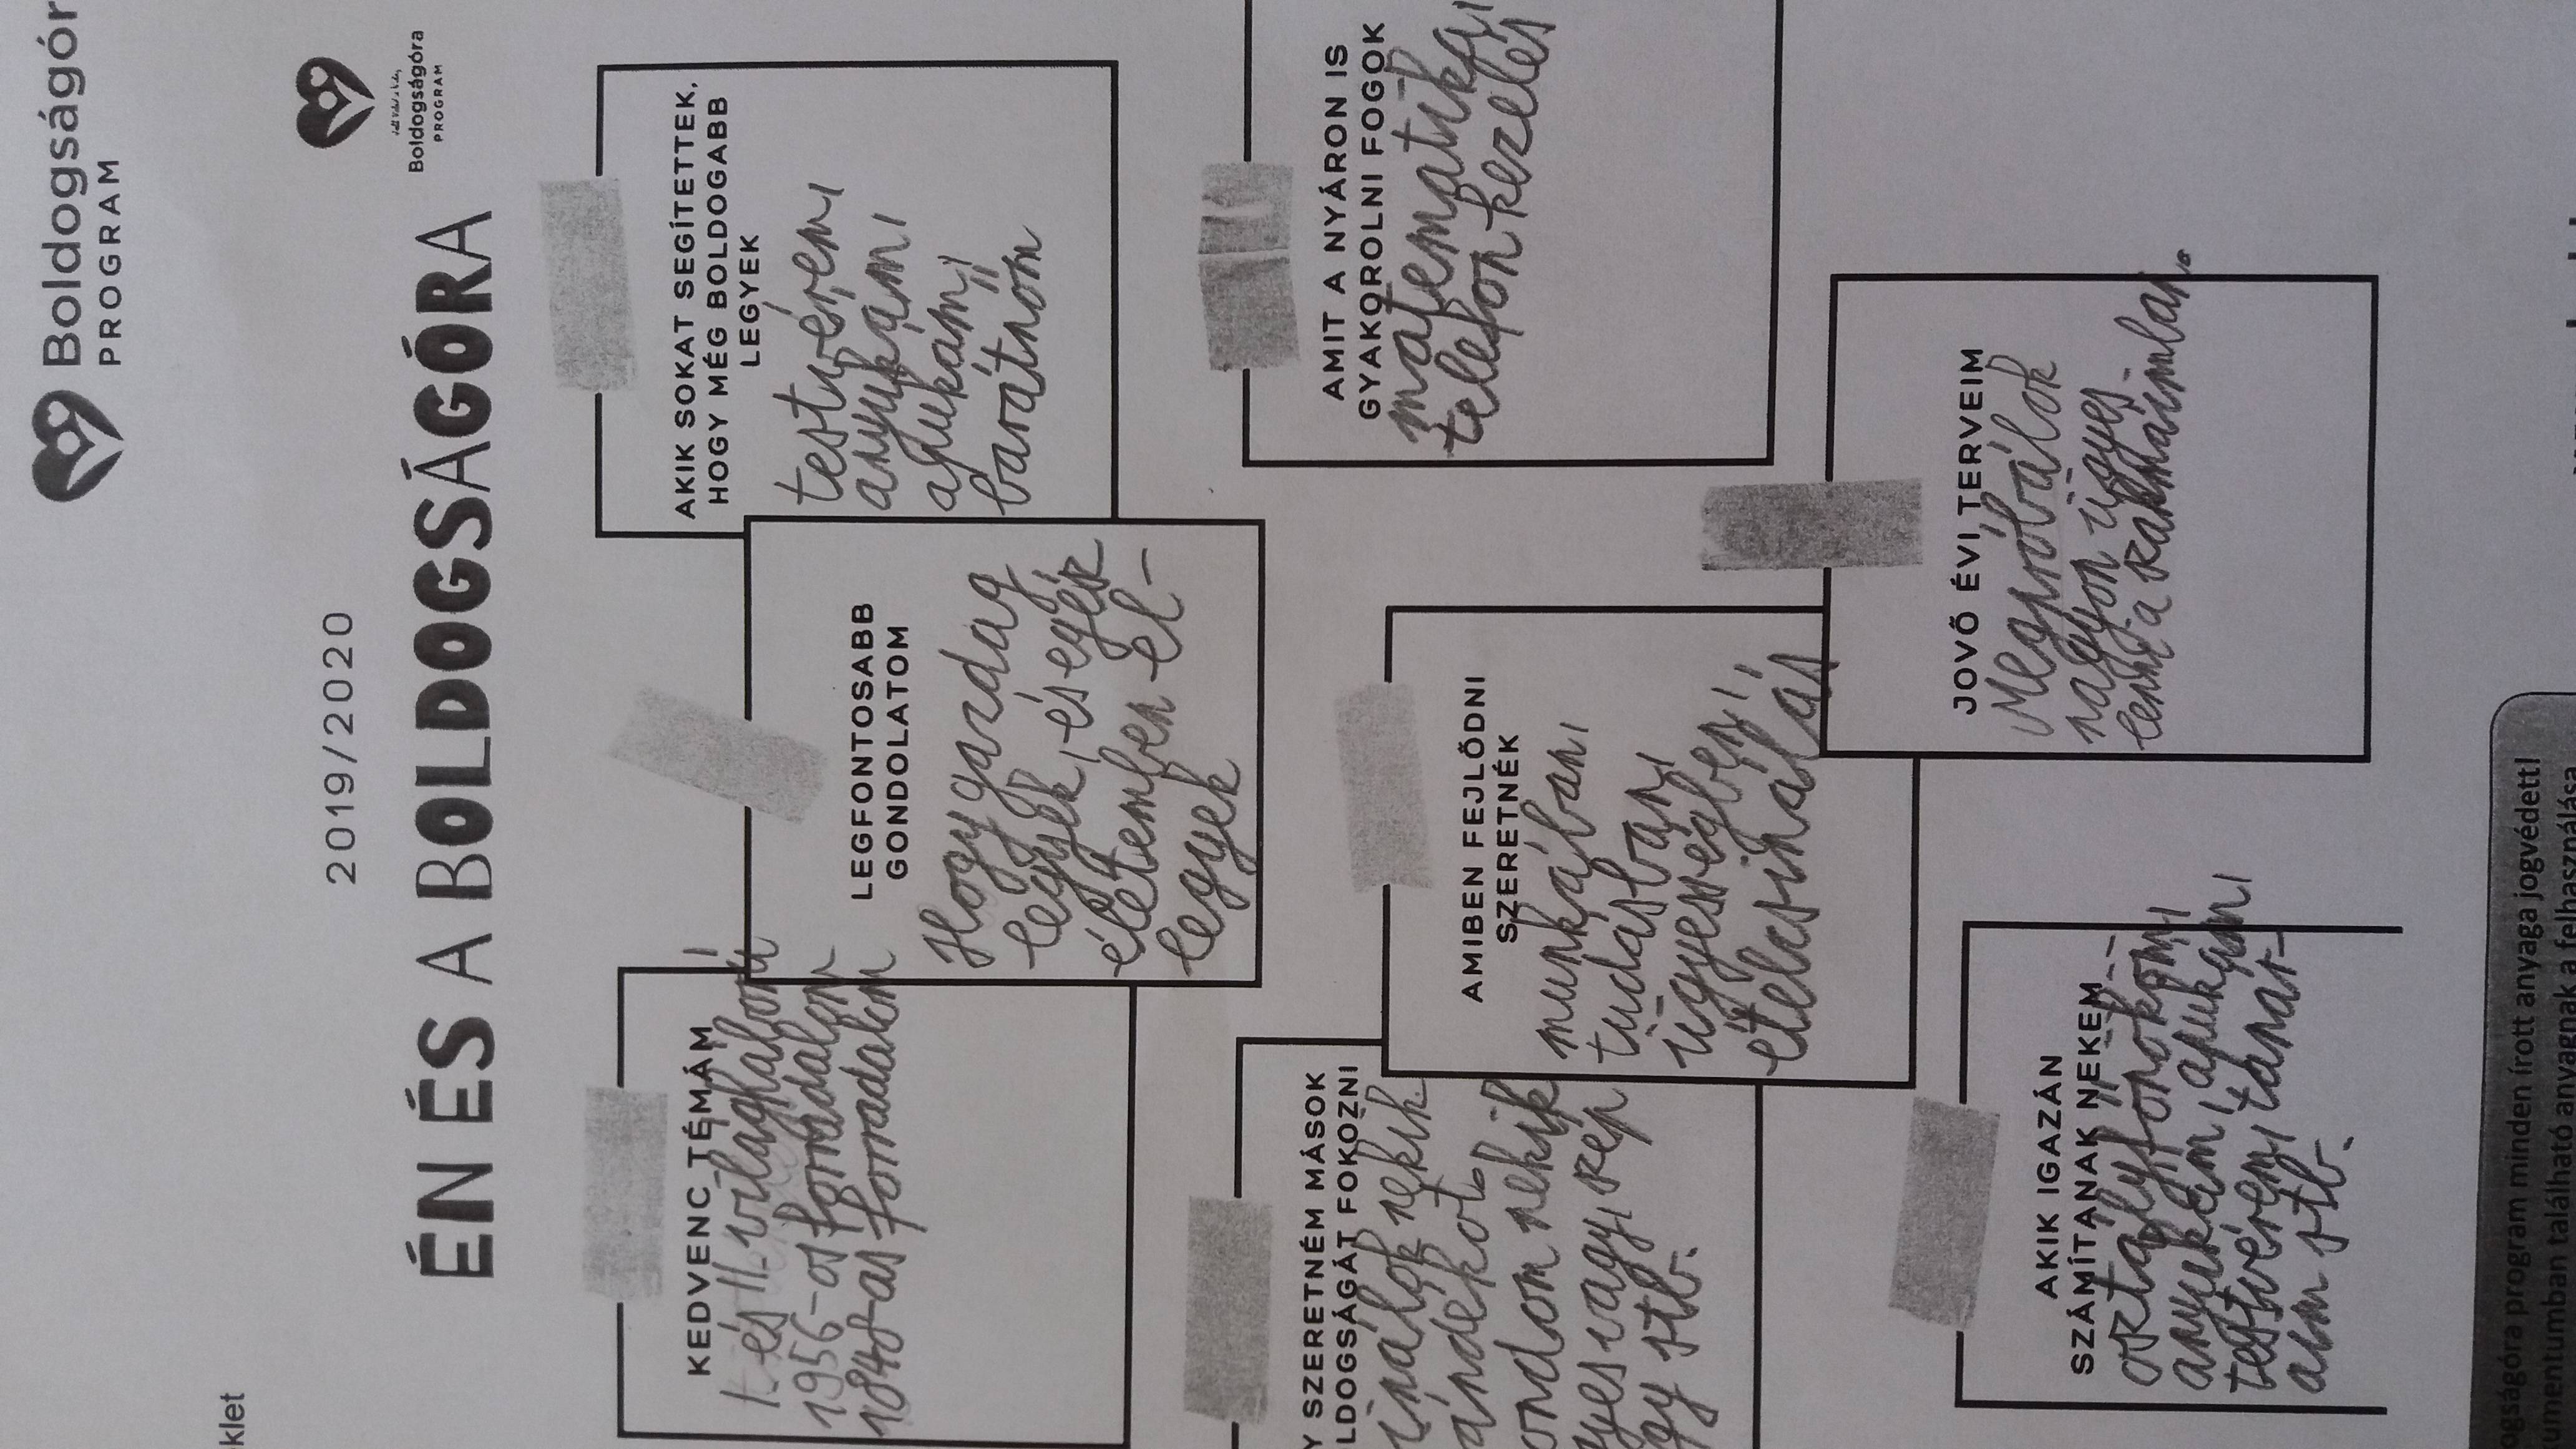 Boldogságór
PROGRAM
klet
2019/2020
Boldogságóra
PROGRAM
ÉN ÉS A BOLDOGSÁGÓRA
KEDVENC TÉMÁM
I és II. világháború,
1956-os forradalom
1848-as forradalom
LEGFONTOSABB
GONDOLATOM
Hogy gazdag
legyek, és egész
életemben el-
legyek
AKIK SOKAT SEGÍTETTEK,
HOGY MÉG BOLDOGABB
LEGYEK
testvérem,
anyukám,
apukám,
barátnőm
Y SZERETNÉM MÁSOK
LDOGSÁGÁT FOKOZNI
inálok nekik
ándékot.
ondom nekik
yes vagy, szép
gy stb.
AMIBEN FEJLŐDNI
SZERETNÉK
munkában,
tudásban,
ügyességben,
ételcsinálás
AMIT A NYÁRON IS
GYAKOROLNI FOGOK
matematika,
telefon kezelés
AKIK IGAZÁN
SZÁMÍTANAK NEKEM
osztályfőnököm,
anyukám, apukám,
testvérem, tanár-
aim stb.
JÖVŐ ÉVI TERVEIM
Megpróbálok
nagyon ügyes
lenni a szakmáimban.
ogságóra program minden írott anyaga jogvédett!
umentumban található anyagnak a felhasználása